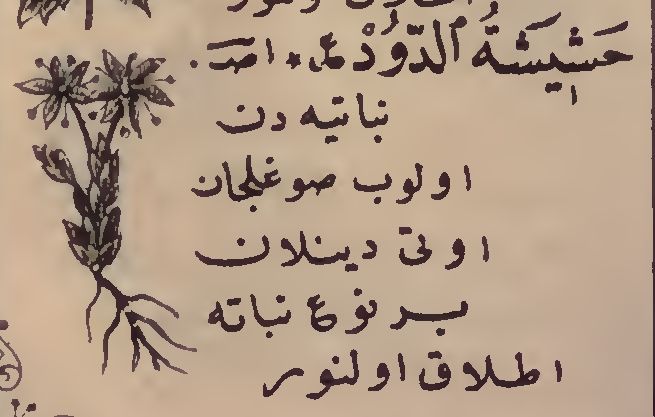 حَشِيشَةُ الدُّودْ ع * اصـ.
نباتيه دن
اولوب صوغلجان
اوتی دینلان
بر نوع نباته
اطلاق اولنور